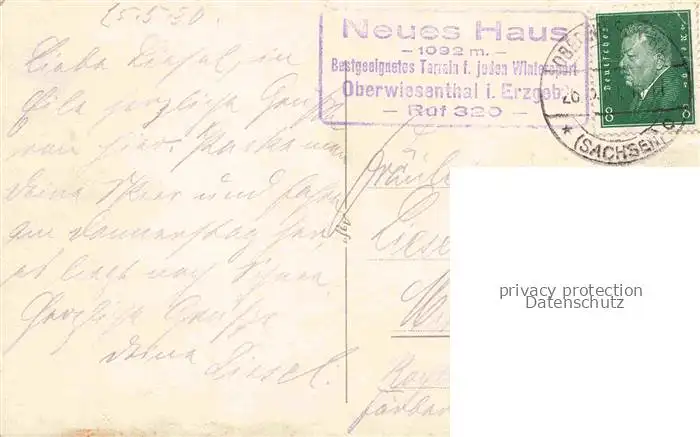 25.5.30.
Liebe Liesel, in
Eile herzliche Grüße
von hier. Packe nun
deine Skier und fahre
am Donnerstag her,
es liegt noch Schnee.
Herzliche Grüße
deine Liesel.
Neues Haus
- 1092 m. -
Bestgeeignetes Terrain f. jeden Wintersport
Oberwiesenthal i. Erzgeb.
- Ruf 320 -
Deutsches
8 8
(SACHSEN)
Fräulein
Liesel
privacy protection
Datenschutz